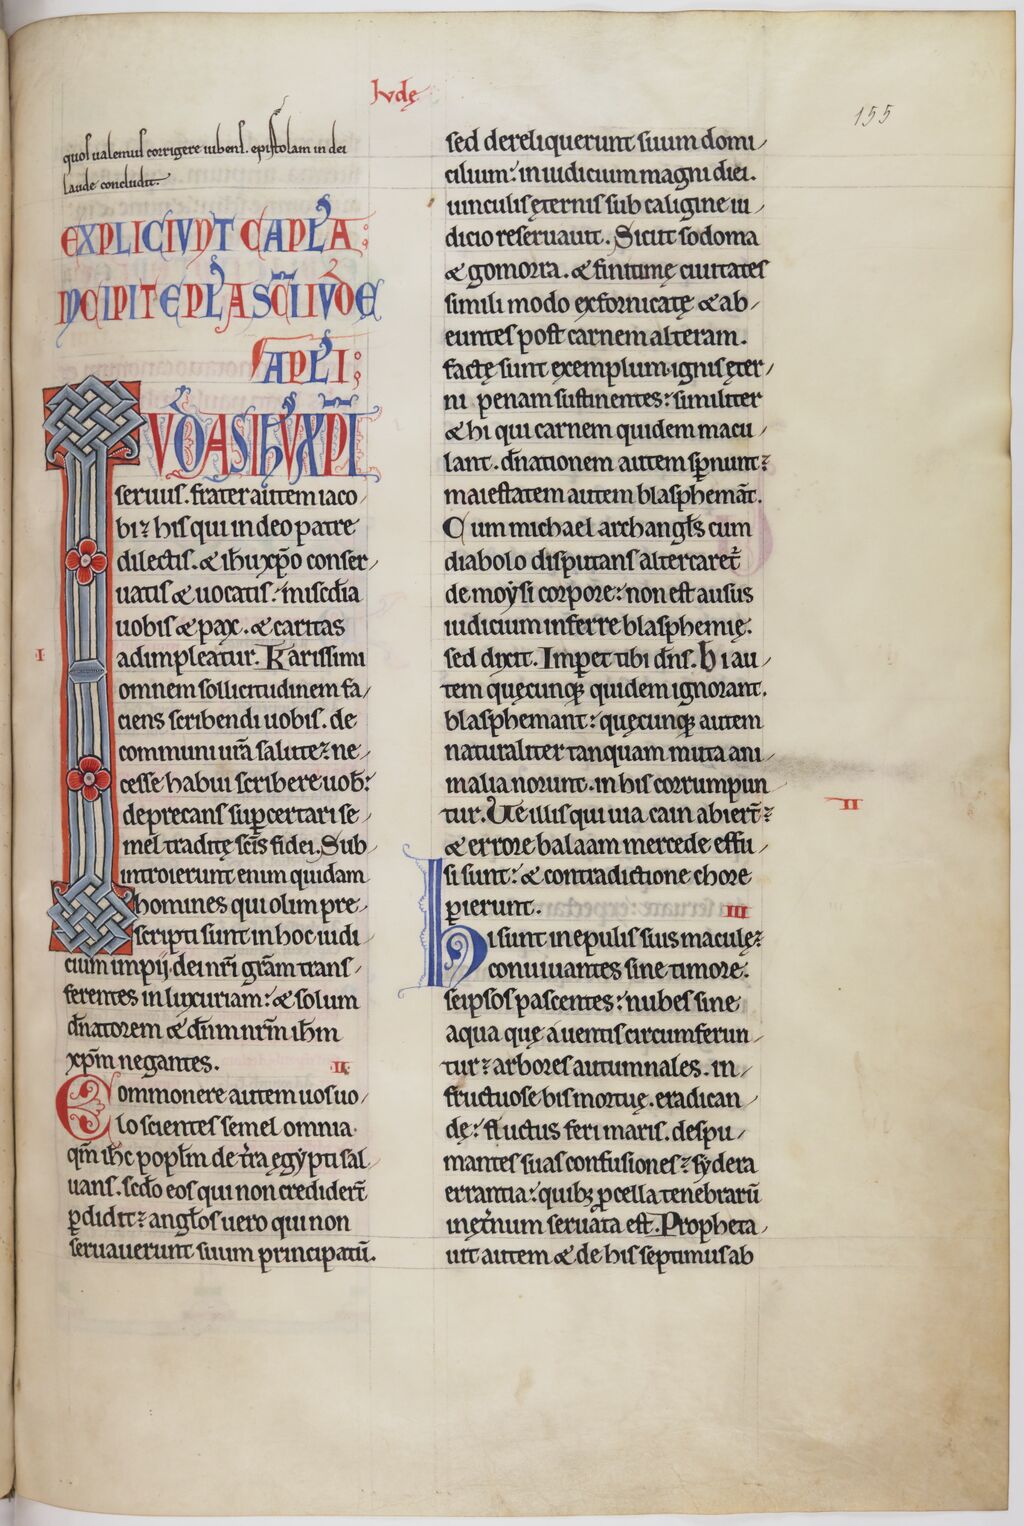 Iudę
155
quos ualemus corrigere iubens. epistolam in dei
laude concludit.
EXPLICIVNT CAPĿA;
INCIPIT EPĿA SC̄I IVDE
APĿI;
IVDAS IHV XP̄I
seruus. frater autem iaco-
bi; his qui in deo patre
dilectis. & ih̄u xp̄o conser-
uatis & uocatis. mis̄cdia
uobis & pax. & caritas
adimpleatur. Karissimi
omnem sollicitudinem fa-
ciens scribendi uobis. de
communi ur̄a salute; ne-
cesse habui scribere uob:
deprecans sup̱certari se-
mel traditę sc̄is fidei. Sub-
introierunt enim quidam
homines qui olim pre-
scripti sunt in hoc iudi-
cium impij. dei nr̄i gr̄am trans-
ferentes in luxuriam: & solum
dn̄atorem & dn̄m nr̄m ih̄m
xp̄m negantes.
I
II
Commonere autem uos uo-
lo scientes semel omnia
qm̄ ih̄c popl̄m de tr̄a ęgypti sal-
uans. sc̄do eos qui non credider̄t
p̱didit; angl̄os uero qui non
seruauerunt suum principatū.
sed dereliquerunt suum domi-
cilium: in iudicium magni diei.
uinculis ęternis sub caligine iu-
dicio reseruauit. Sicut sodoma
& gomorra. & finitimę ciuitates
simili modo exfornicatę & ab-
euntes post carnem alteram.
factę sunt exemplum. ignis ęter-
ni penam sustinentes: similiter
& hi qui carnem quidem macu-
lant. dn̄ationem autem sp̱nunt;
maiestatem autem blasphemāt.
Cum michael archangl̄s cum
diabolo disputans altercaret̄
de moysi corpore: non est ausus
iudicium inferre blasphemię.
sed dixit. Imp̱et tibi dn̄s. Hi au-
tem quęcunq; quidem ignorant.
blasphemant: quęcunq; autem
naturaliter tanquam muta ani-
malia norunt. in his corrumpun
tur. Ue illis qui uia cain abier̄t;
& errore balaam mercede effu-
si sunt: & contradictione chore
p̱ierunt.
II
III
Hi sunt in epulis suis maculę;
conuiuantes sine timore.
seipsos pascentes: nubes sine
aqua quę a uentis circumferun-
tur; arbores autumnales. in-
fructuose bis mortuę. eradican-
dę: fluctus feri maris. despu-
mantes suas confusiones; sydera
errantia: quib; p̱cella tenebrarū
in ęt̄num seruata est. Propheta-
uit autem & de his septimus ab